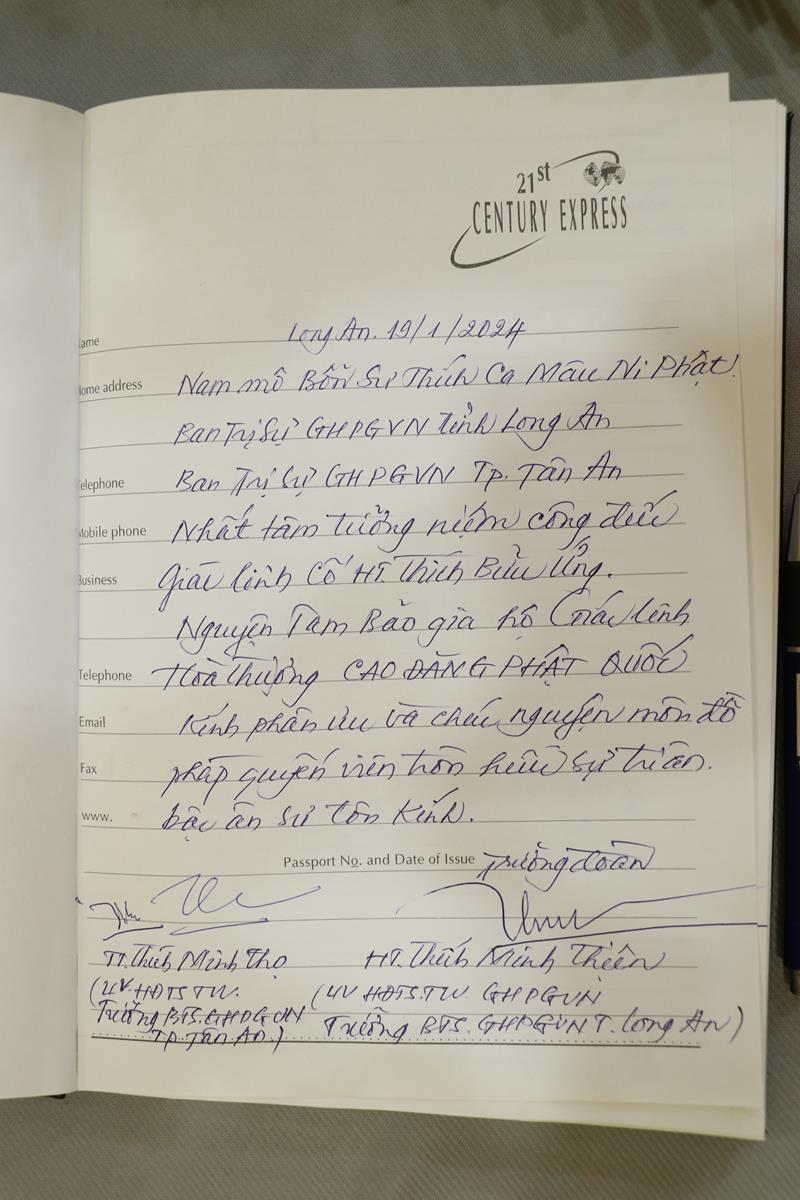 21st
CENTURY EXPRESS
ame
Long An. 19/1/2024
ome address
Nam mô Bổn Sư Thích Ca Mâu Ni Phật.
Ban Trị Sự GHPGVN tỉnh Long An
elephone
Ban Trị Sự GHPGVN Tp. Tân An
Mobile phone
Nhất tâm tưởng niệm công đức
Business
Giác linh Cố HT. Thích Bửu Ứng.
Nguyện Tam Bảo gia hộ Giác linh
Telephone
Hoà Thượng CAO ĐĂNG PHẬT QUỐC
Email
Kính phân ưu và chúc nguyện môn đồ
Fax
pháp quyến viên tròn hiếu sự tri ân.
www.
bậc ân sư tôn kính.
Passport No. and Date of Issue
Trưởng đoàn
TT. Thích Minh Thọ
HT. Thích Minh Thiện
(UV. HĐTS TW.
(UV HĐTS. TW GHPGVN
Trưởng BTS. GHPGVN
Trưởng BTS. GHPGVN T. Long An)
Tp. Tân An.)